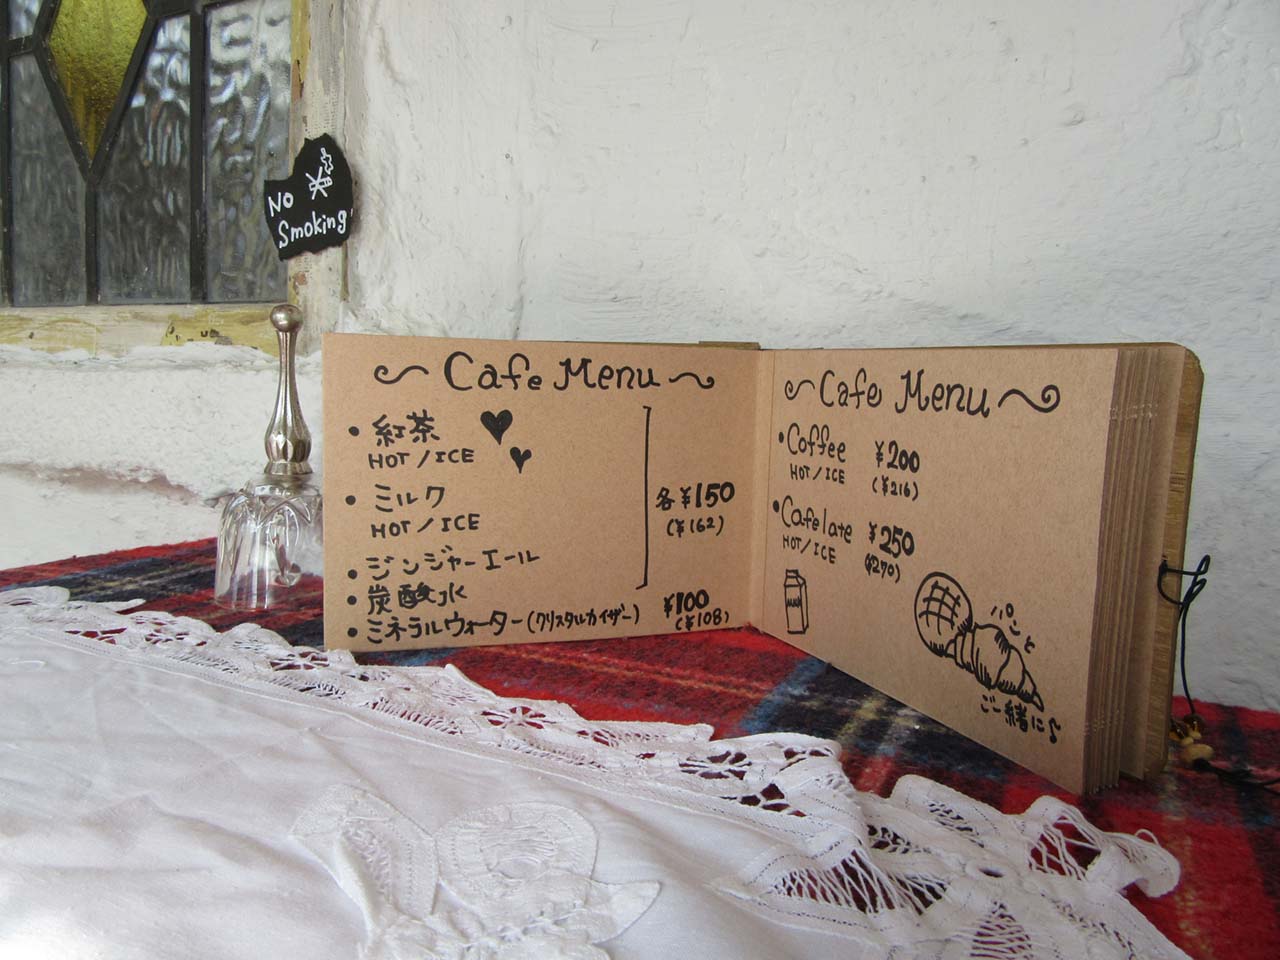 No
Smoking
Cafe Menu
• 紅茶
HOT / ICE
• ミルク
HOT / ICE
• ジンジャーエール
• 炭酸水
各 ¥150
(¥162)
• ミネラルウォーター(クリスタルカイザー) ¥100
(¥108)
Cafe Menu
• Coffee ¥200
HOT / ICE (¥216)
• Cafe late ¥250
HOT / ICE (¥270)
パンと
ご一緒に♪